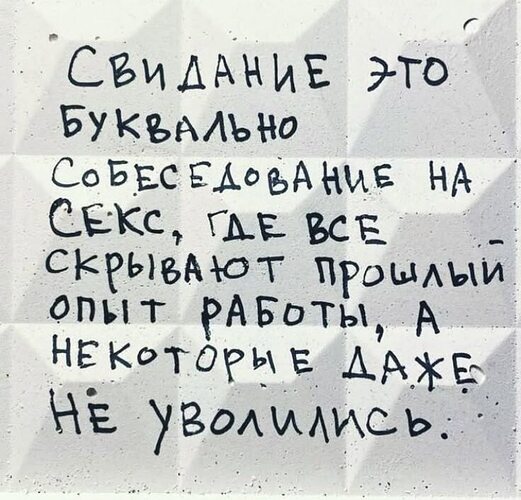 Свидание это
буквально
собеседование на
секс, где все
скрывают прошлый
опыт работы, а
некоторые даже
не уволились.